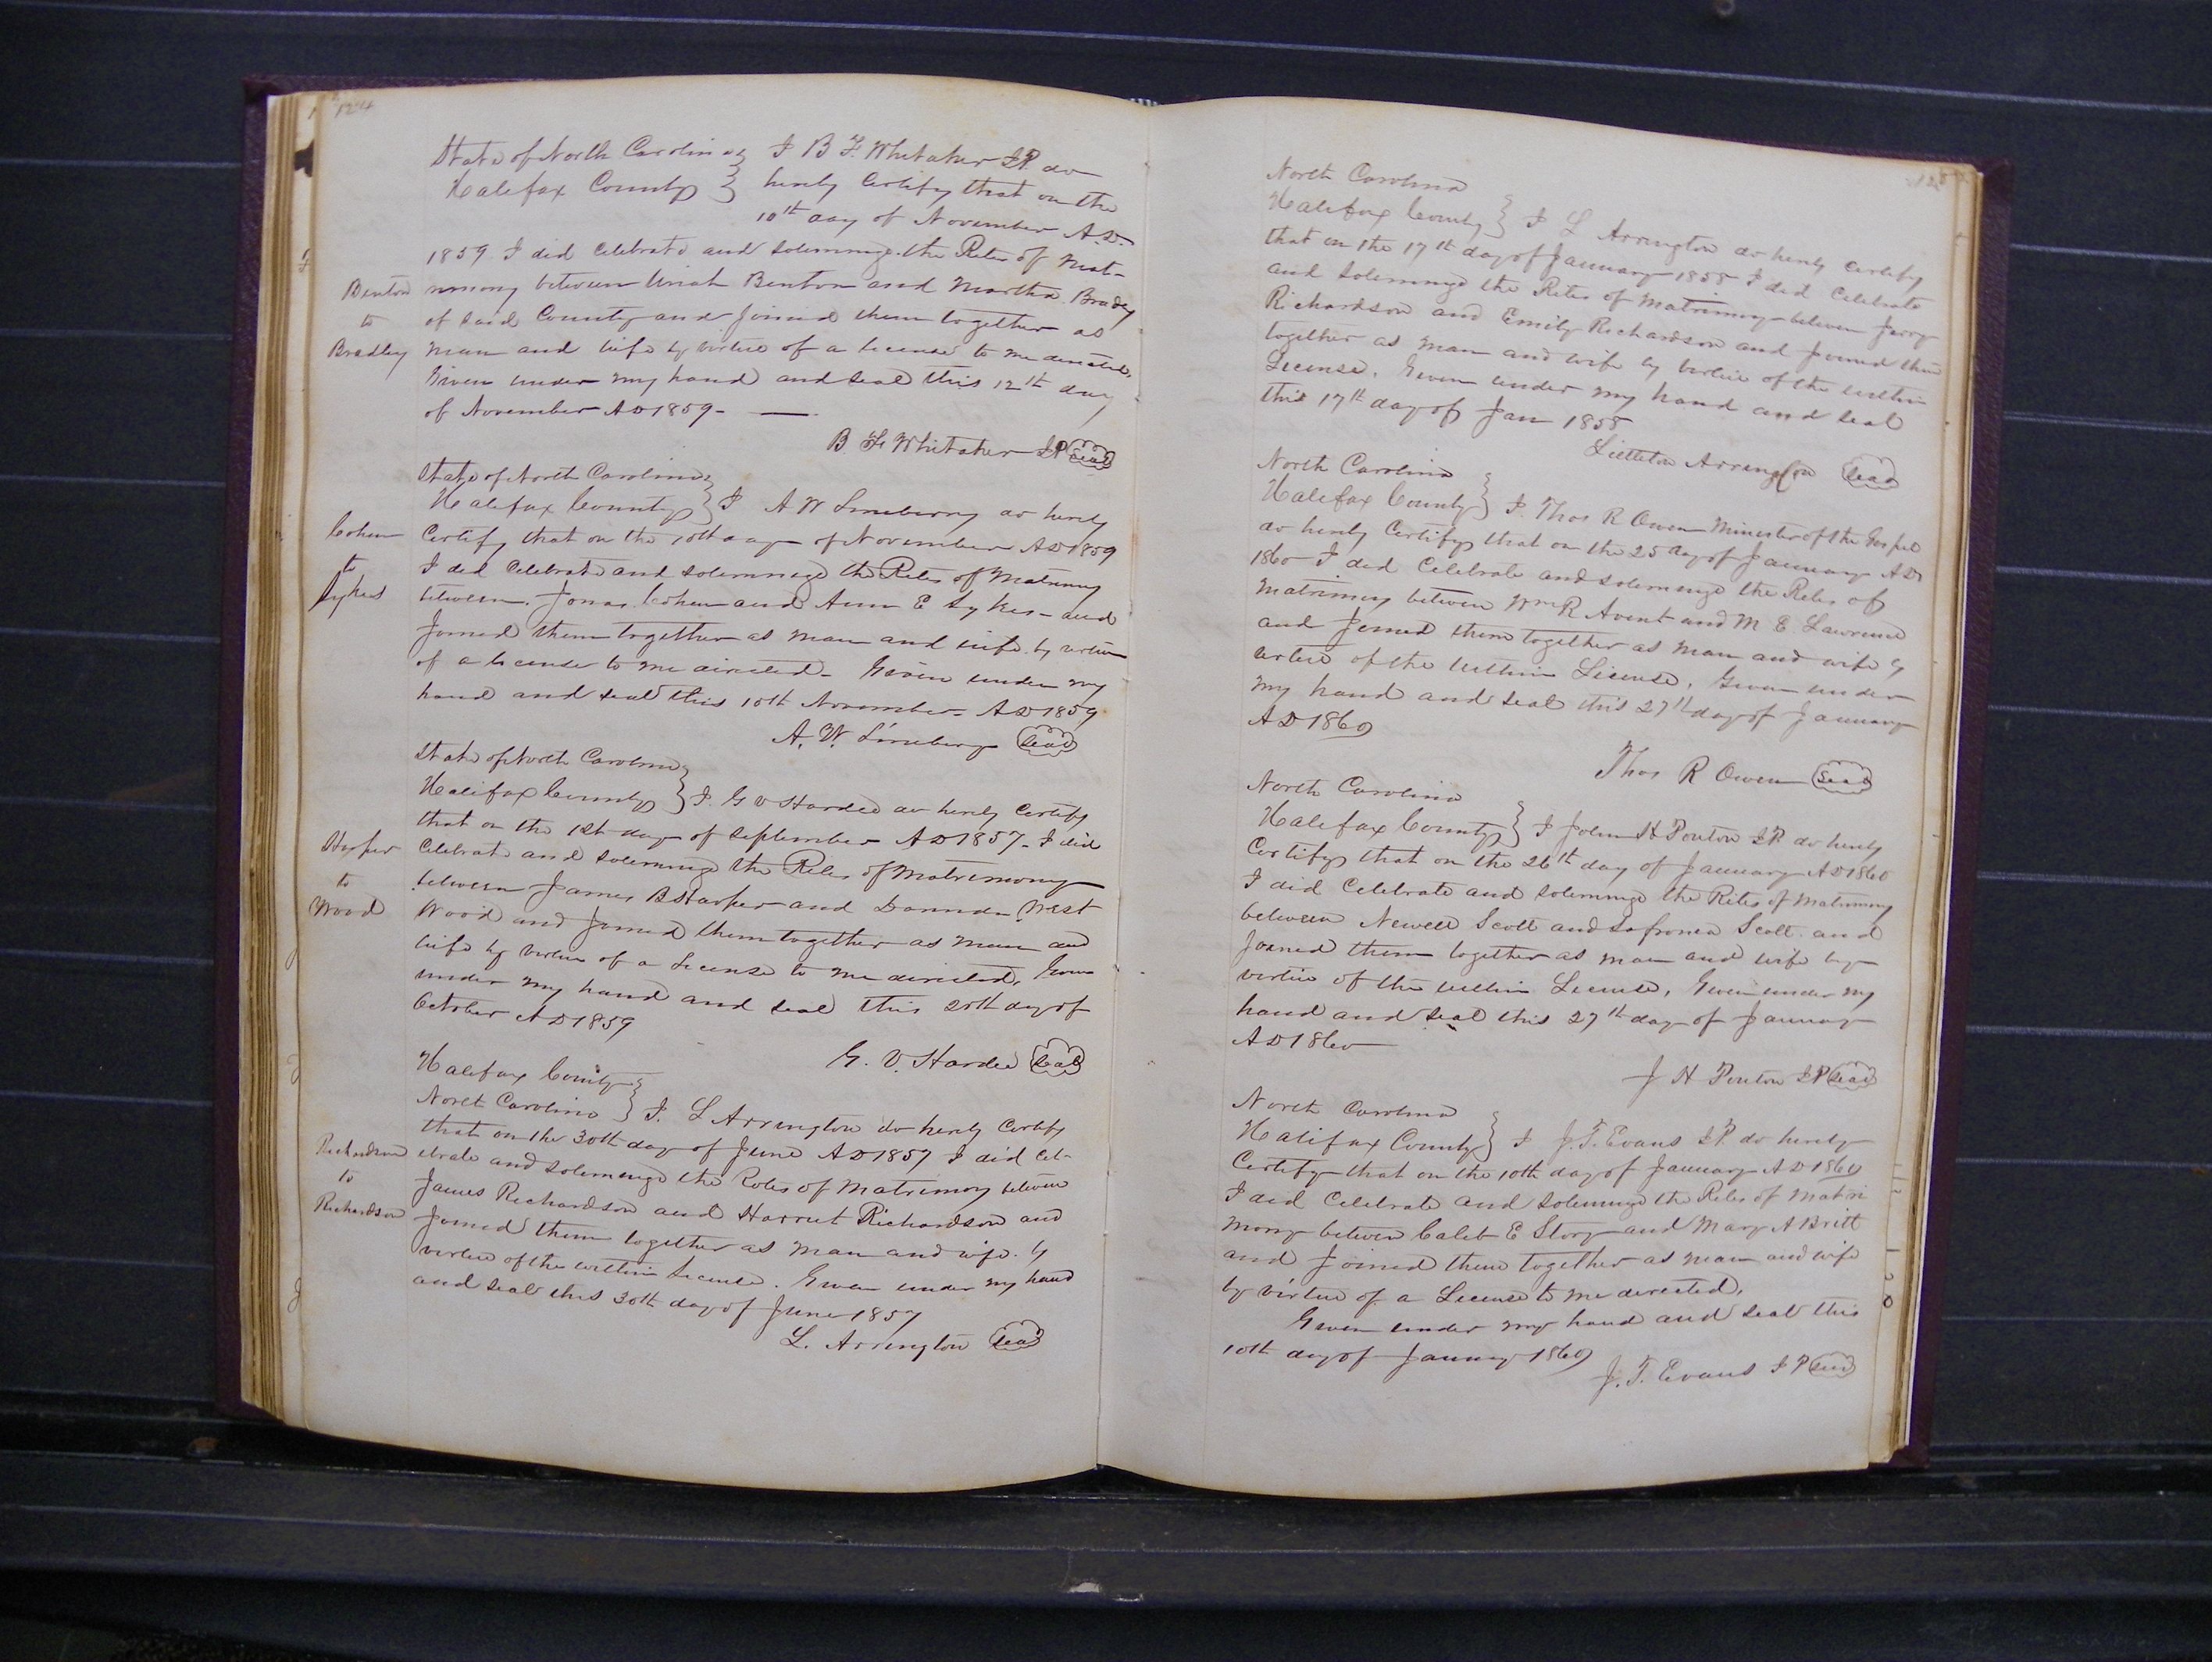 124
State of North Carolina } I B. F. Whitaker J.P. do
Halifax County } hereby Certify that on the
10th day of November A.D.
1859 I did celebrate and solemnize the Rites of Mat-
Benton
to
Bradley
rimony between Uriah Benton and Martha Bradley
of said County and Joined them together as
man and wife by virtue of a License to me directed,
Given under my hand and seal this 12th day
of November AD 1859 -
B. F. Whitaker J.P. Seal
State of North Carolina }
Halifax County } I A W Lineberry do hereby
Cohen
to
Sykes
Certify that on the 10th day of November AD 1859
I did Celebrate and solemnize the Rites of Matrimony
between Jonas Cohen and Ann E Sykes - and
Joined them together as man and wife by virtue
of a License to me directed - Given under my
hand and seal this 10th November AD 1859
A. W. Lineberry Seal
State of North Carolina }
Halifax County } I. G V Hardee do hereby Certify
that on the 1st day of September AD 1857 - I did
Harper
to
Wood
Celebrate and Solemnize the Rites of Matrimony
between James B Harper and West
Wood and Joined them together as man and
wife by virtue of a License to me directed, Given
under my hand and seal this 20th day of
October AD 1859
G. V. Hardee Seal
Halifax County }
North Carolina } I. L Arrington do hereby Certify
that on the 30th day of June AD 1857 I did Cel-
Richardson
to
Richardson
ebrate and solemnize the Rites of Matrimony between
James Richardson and Harriet Richardson and
Joined them together as man and wife by
virtue of the within License. Given under my hand
and seal this 30th day of June 1857
L. Arrington Seal
125
North Carolina
Halifax County } I L Arrington do hereby Certify
that on the 17th day of January 1858 I did Celebrate
and Solemnize the Rites of Matrimony between Jerry
Richardson and Emily Richardson and Joined them
together as man and wife by virtue of the within
License. Given under my hand and seal
this 17th day of Jan 1858
Littleton Arrington Seal
North Carolina
Halifax County } I. Thos R Owen Minister of the Gospel
do hereby Certify that on the 25 day of January AD
1860 I did Celebrate and solemnize the Rites of
Matrimony between Wm R Avent and M E Lawrence
and Joined them together as man and wife by
virtue of the within License, Given under
my hand and seal this 27th day of January
AD 1860
Thos R Owen Seal
North Carolina
Halifax County } I John H Ponton J.P. do hereby
Certify that on the 26th day of January AD 1860
I did Celebrate and solemnize the Rites of Matrimony
between Newell Scott and Safronia Scott and
Joined them together as man and wife by
virtue of the within License, Given under my
hand and Seal this 27th day of January
AD 1860
J H Ponton J.P. Seal
North Carolina
Halifax County } I J. T. Evans J.P. do hereby
Certify that on the 10th day of January AD 1860
I did Celebrate and Solemnize the Rites of Matri
mony between Caleb E Story and Mary A Britt
and Joined them together as man and wife
by virtue of a License to me directed,
Given under my hand and seal this
10th day of January 1860
J. T. Evans J P Seal